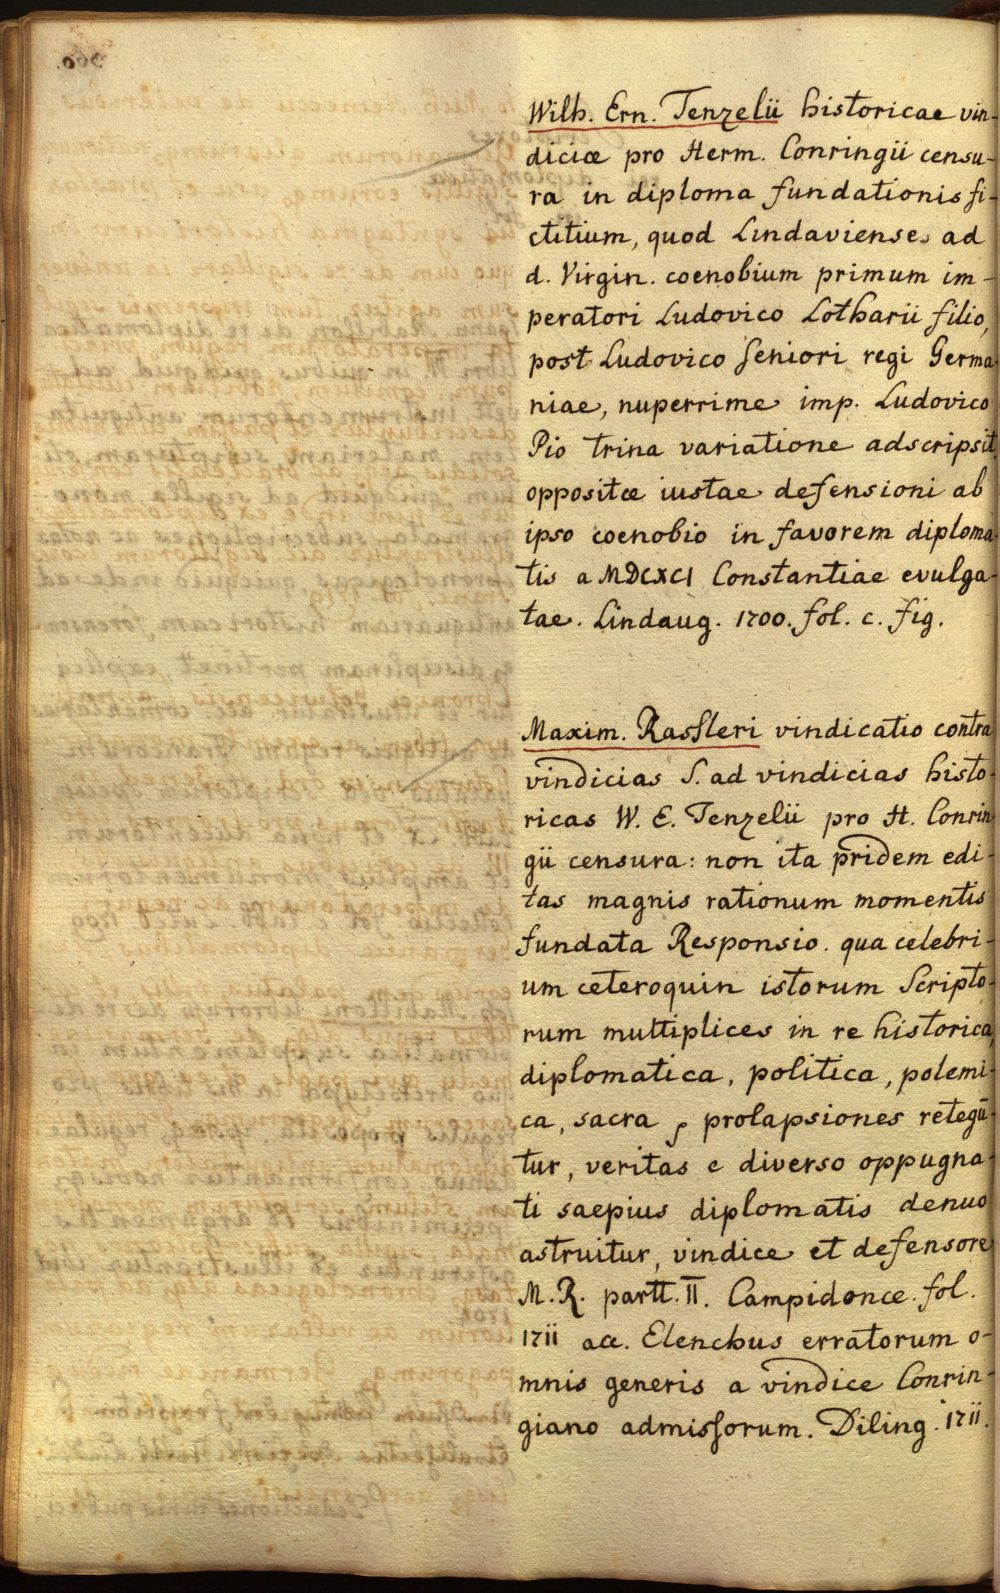 Wilh. Ern. Tenzelii historicae vin-
diciæ pro Herm. Conringii censu-
ra in diploma fundationis fi-
ctitium, quod Lindavienses ad
d. Virgin. coenobium primum im-
peratori Ludovico Lotharii filio,
post Ludovico Seniori regi Germa-
niae, nuperrime imp. Ludovico
Pio trina variatione adscripsit,
oppositæ iustae defensioni ab
ipso coenobio in favorem diploma-
tis a MDCXCI Constantiae evulga-
tae. Lindaug. 1700. fol. c. fig.
Maxim. Rassleri vindicatio contra
vindicias S. ad vindicias histo-
ricas W. E. Tenzelii pro H. Conrin-
gii censura: non ita pridem edi-
tas magnis rationum momentis
fundata Responsio. qua celebri-
um ceteroquin istorum Scripto-
rum multiplices in re historica,
diplomatica, politica, polemi-
ca, sacra prolapsiones retegū-
tur, veritas e diverso oppugna-
ti saepius diplomatis denuo
astruitur, vindice et defensore
M. R. partt. II. Campidonce. fol.
1711 acc. Elenchus erratorum o-
mnis generis a vindice Conrin-
giano admissorum. Diling. 1711.